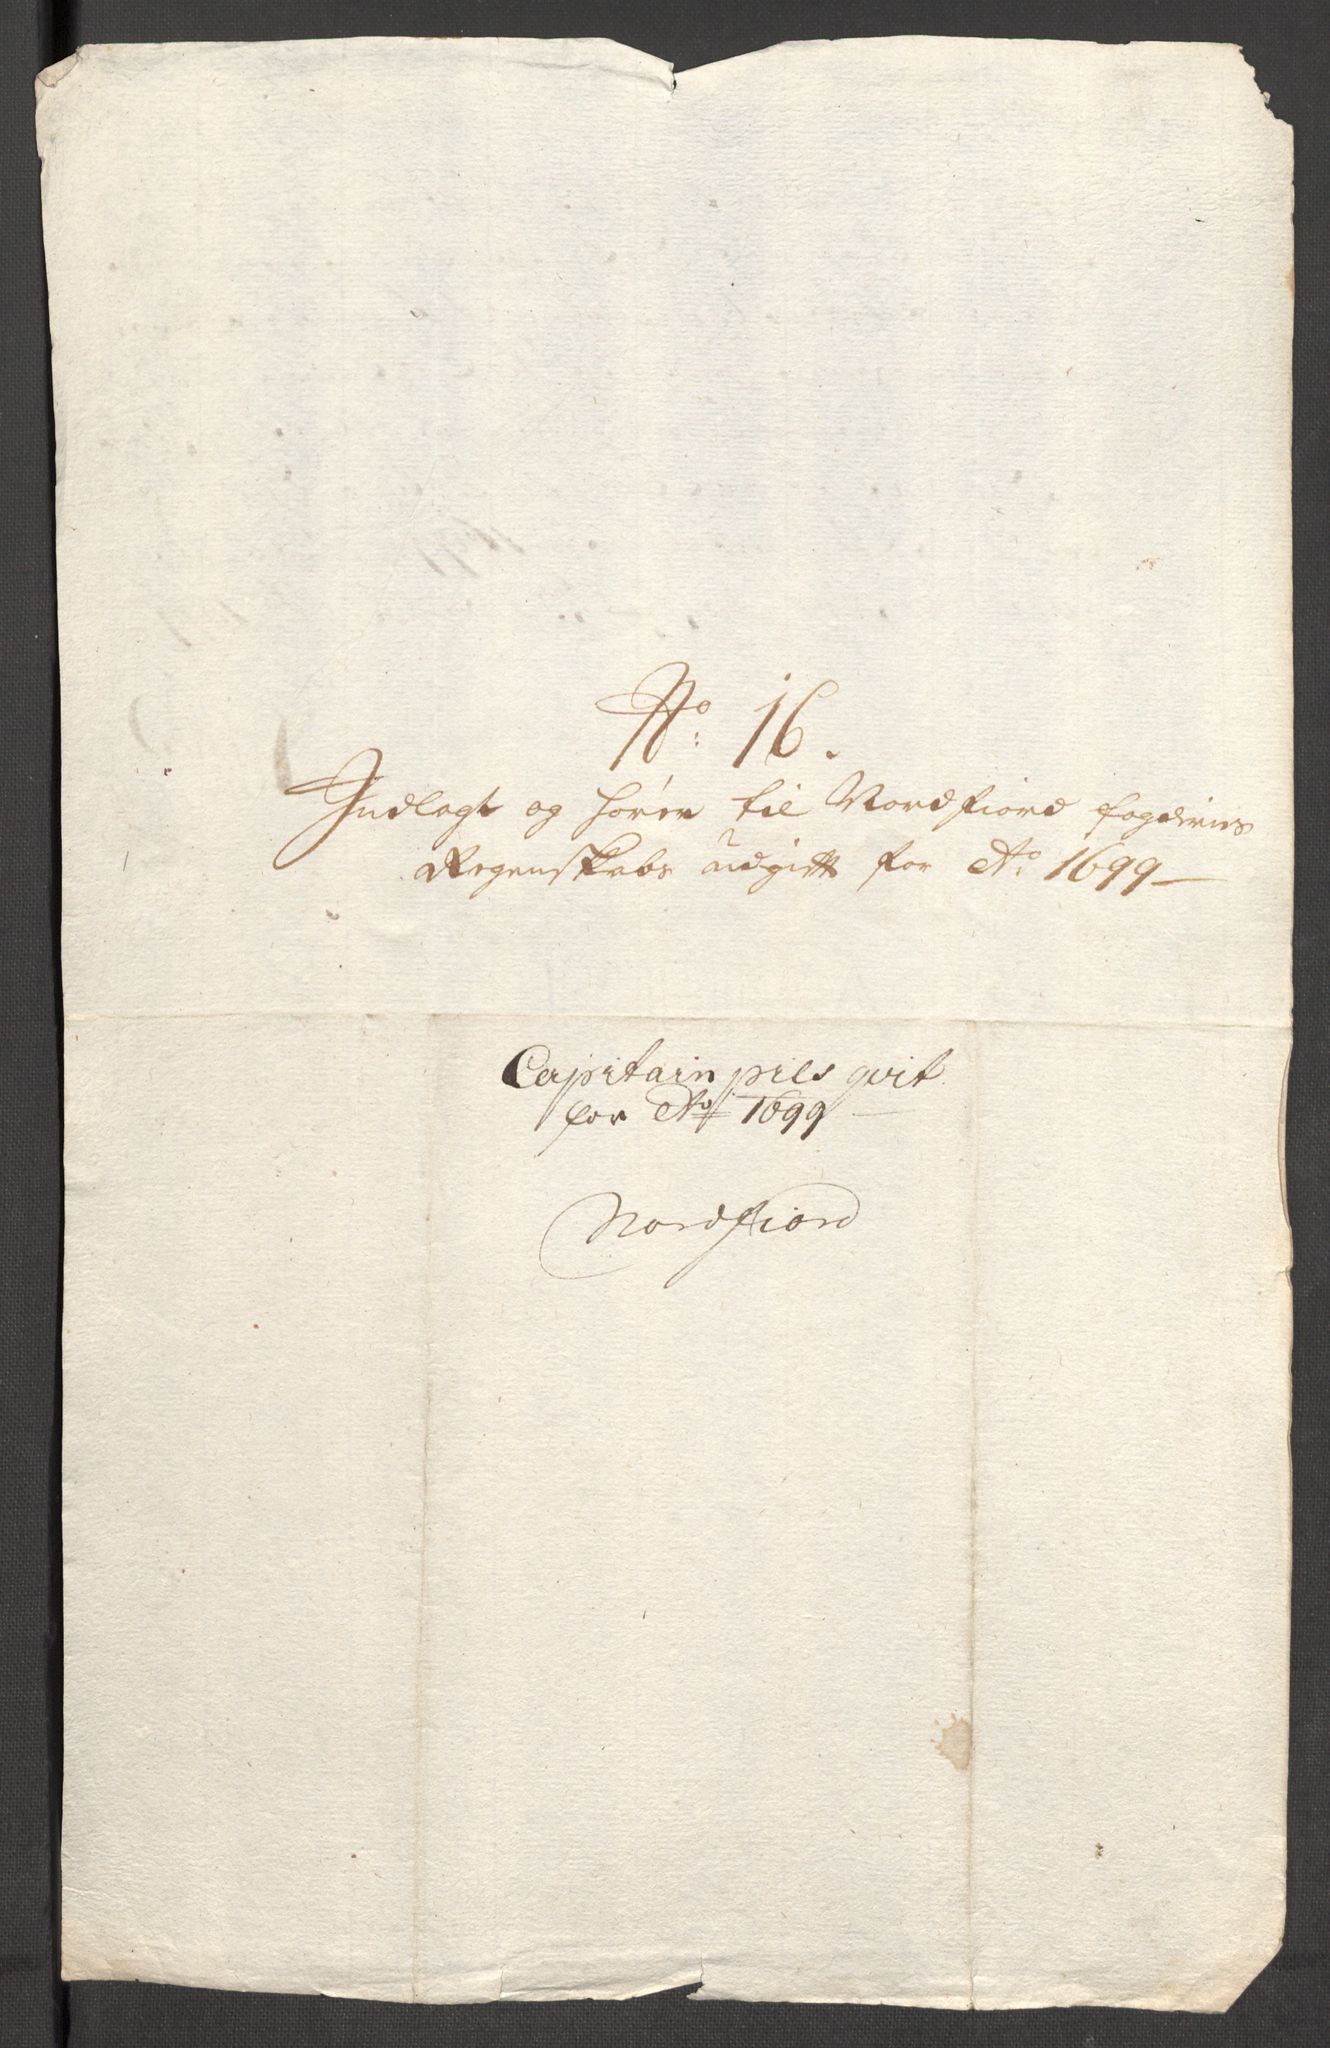 No: 16.
Indlagt og hører til Nordfiord fogderies
Regenskabs udgifft for Ao: 1699
Capitain pils qvit.
for Ao 1699
Nordfiord